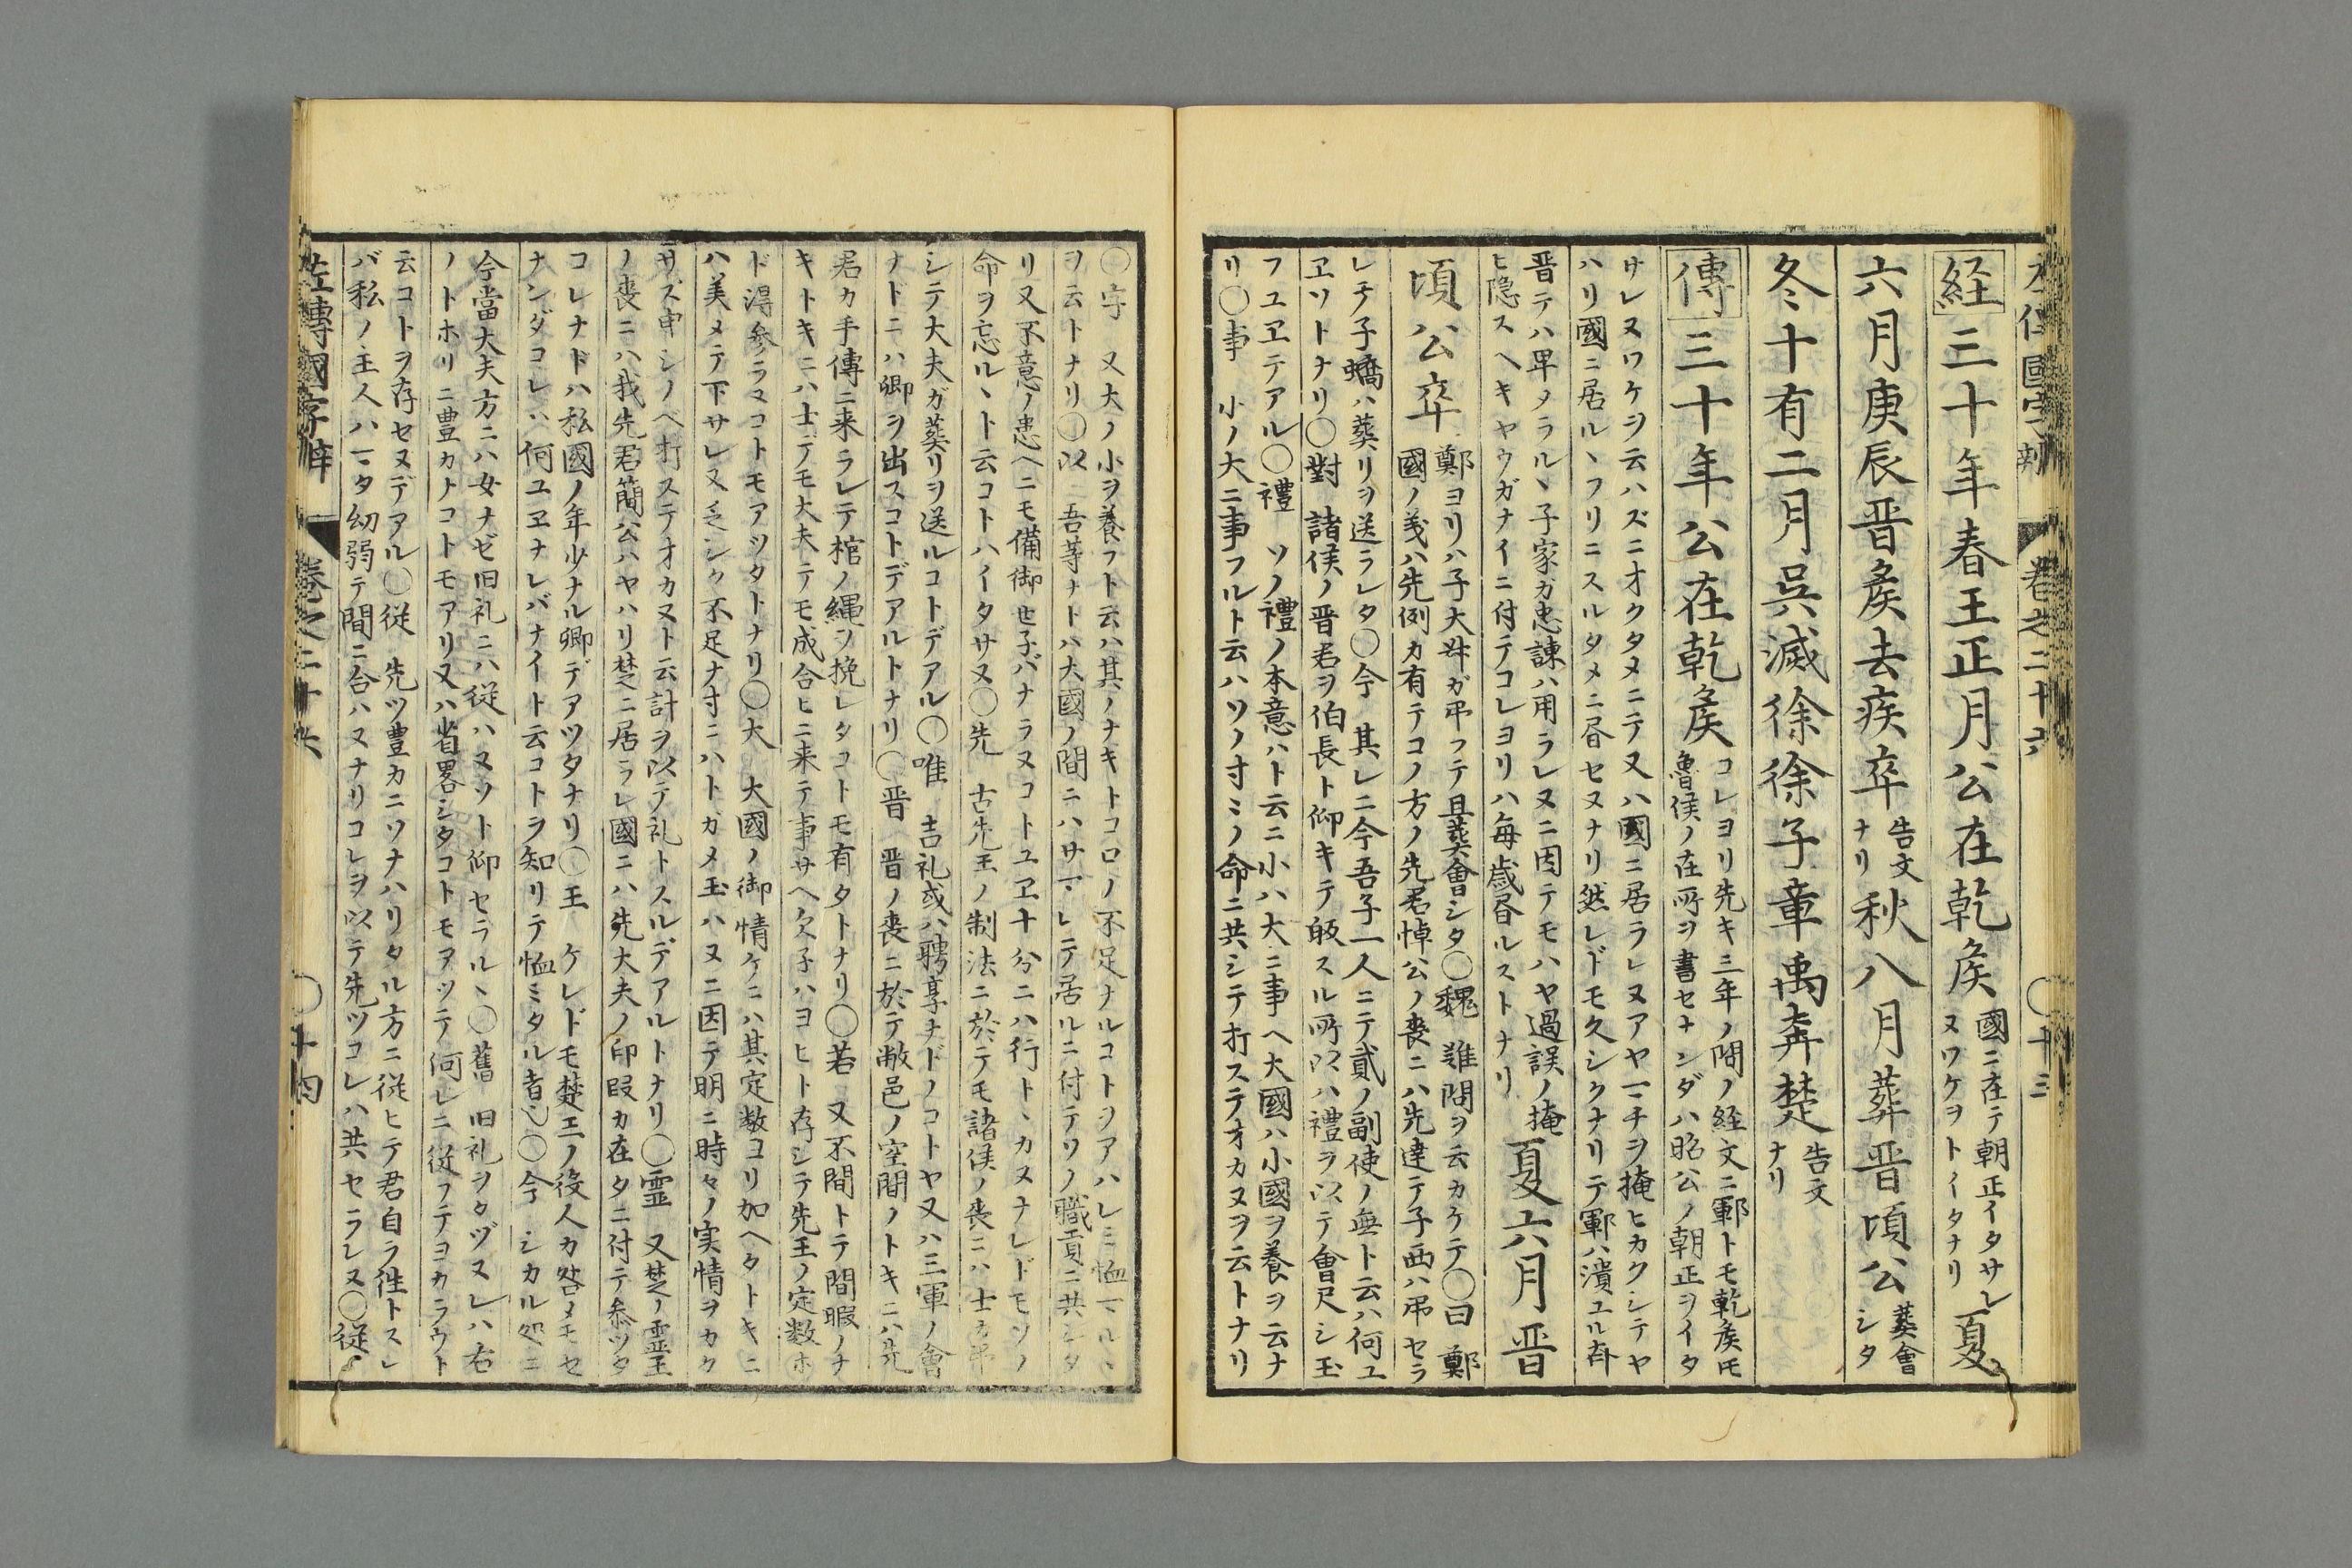 左傳國字辯 卷之二十六 〇十三
経三十年春王正月公在乾侯 國ニ在テ朝正イタサレ
ヌワケヲトイタナリ 夏
六月庚辰晋侯去疾卒 告文
ナリ 秋八月葬晋頃公 葬會
シタ
冬十有二月呉滅徐徐子章禹奔楚 告文
ナリ
傳三十年公在乾侯 コレヨリ先キ三年ノ間ノ経文ニ鄆トモ乾侯トモ
魯侯ノ在所ヲ書セナンダハ昭公ノ朝正ヲイタ
サレヌワケヲ云ハズニオクタメニテ又ハ國ニ居ラレヌアヤマチヲ掩ヒカクシテヤ
ハリ國ニ居ルヽフリニスルタメニ居セヌナリ然レドモ久シクナリテ鄆ハ潰エル
晋テハ卑メラルヽ子家ガ忠諫ハ用ラレヌニ因テモハヤ過誤ノ掩
ヒ隠スヘキヤウガナイニ付テコレヨリハ毎歳ルストナリ 夏六月晋
頃公卒 鄭ヨリハ子大叔ガ弔フテ且葬會シタ〇魏 進問ヲ云カケテ〇曰 鄭
國ノ義ハ先例カ有テコノ方ノ先君悼公ノ喪ニハ先達テ子西ハ弔セラ
レ子蟜ハ葬リヲ送ラレタ〇今 其レニ今吾子一人ニテ貳ノ副使ノ無ト云ハ何ユ
ヱソトナリ〇對 諸侯ノ晋君ヲ伯長ト仰キテ皈スル所以ハ禮ヲ以テ會尺シ玉
フユヱテアル〇禮 ソノ禮ノ本意ハト云ニ小ハ大ニ事ヘ大國ハ小國ヲ養ヲ云ナ
リ〇事 小ノ大ニ事フルト云ハソノ寸ミノ命ニ共シテ打ステオカヌヲ云トナリ
〇字 又大ノ小ヲ養フト云ハ其ノナキトコロノ不足ナルコトヲアハレミ恤マルヽ
ヲ云トナリ〇以 吾等ナトハ大國ノ間ニハサマレテ居ルニ付テソノ職貢ニ共シタ
リ又不意ノ患ヘニモ備御セ子バナラヌコトユヱ十分ニハ行トヽカヌナレドモソノ
命ヲ忘ルヽト云コトハイタサヌ〇先 古先王ノ制法ニ於テモ諸侯ノ喪ニハ士カ弔
シテ大夫ガ葬リヲ送ルコトデアル〇唯 吉礼或ハ聘享ナドノコトヤ又ハ三軍ノ會
ナドニハ卿ヲ出スコトデアルトナリ〇晋 晋ノ喪ニ於テ敝邑ノ空間ノトキニハ先
君カ手傳ニ来ラレテ棺ノ縄ヲ挽レタコトモ有タトナリ〇若 又不間トテ間暇ノナ
キトキニハ士デモ大夫テモ成合ヒニ来テ事サヘ欠子ハヨヒト存シテ先王ノ定数ホ
ド得参ラマコトモアツタトナリ〇大 大國ノ御情ケニハ其定数コリ加ヘタトキニ
ハ美メテ下サレ又乏シク不足ナ寸ニハトガメ玉ハヌニ因テ明ニ時々ノ実情ヲカク
サズ申シノベ打ステオカヌト云計ヲ以テ礼トスルデアルトナリ〇霊 又楚ノ霊王
ノ喪ニハ我先君簡公ハヤハリ楚ニ居ラレ國ニハ先大夫ノ印段カ在タニ付テ参ツタ
コレナドハ私國ノ年少ナル卿デアツタナリ〇王 ケレドモ楚王ノ役人カ咎メモセ
ナンダコレハ何ユヱナレバナイト云コトヲ知リテ恤ミタル者也〇今 シカル処ニ
今當大夫方ニハ女ナゼ旧礼ニハ従ハヌソト仰セラルヽ〇舊 旧礼ヲタヅヌレハ右
ノトホリニ豊カナコトモアリ又ハ省畧シタコトモアツテ何レニ従フテヨカラウト
云コトヲ存セヌデアル〇従 先ツ豊カニソナハリタル方ニ従ヒテ君自ラ往トスレ
バ私ノ主人ハマタ幼弱テ間ニ合ハヌナリコレヲ以テ先ツコレハ共セラレヌ〇従
左傳國字辯 卷之二十六 〇十四